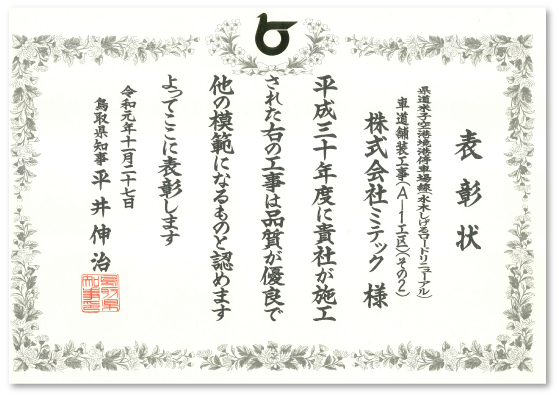 表彰状
県道米子空港境港停車場線(水木しげるロードリニューアル)
車道舗装工事(A―1工区)(その2)
株式会社ミテック 様
平成三十年度に貴社が施工
された右の工事は品質が優良で
他の模範になるものと認めます
よってここに表彰します
令和元年十一月二十七日
鳥取県知事 平井伸治